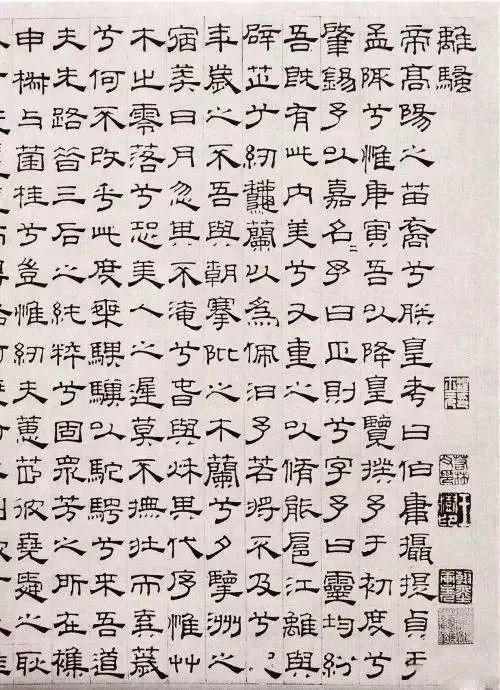 離騷
帝高陽之苗裔兮朕皇考曰伯庸攝提貞于
孟陬兮惟庚寅吾以降皇覽揆予于初度兮
肇錫予以嘉名〻予曰正則兮字予曰靈均紛
吾既有此內美兮又重之以脩能扈江離與
辟芷兮紉龝蘭以為佩汩予若將不及兮恐
年歲之不吾與朝搴阰之木蘭兮夕擥洲之
宿莽日月忽其不淹兮春與秋其代序惟艸
木之零落兮恐美人之遲莫不撫壯而棄薉
兮何不改乎此度椉騏驥以駝騁兮來吾道
夫先路昔三后之純粹兮固衆芳之所在襍
申椒与菌桂兮豈惟紉夫蕙茝彼堯舜之耿